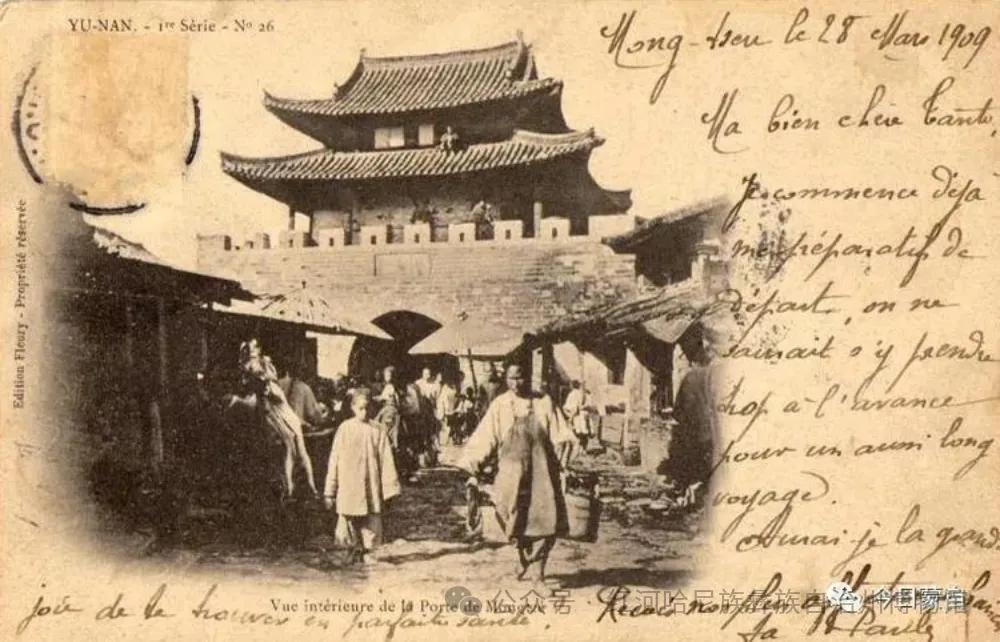 YU-NAN. - 1re Série - No 26
Mong-tseu le 28 Mars 1909
Ma bien chère Tante,
Je commence déjà
me préparatif de
départ, on ne
saurait s'y prendre
trop à l'avance
pour un aussi long
voyage.
Aurai-je la grande
joie de te trouver en parfaite santé.
Edition Fleury - Propriété réservée
Vue intérieure de la Porte de Mongtze
公众号
河哈尼族彝族自治州博物馆
今日家国